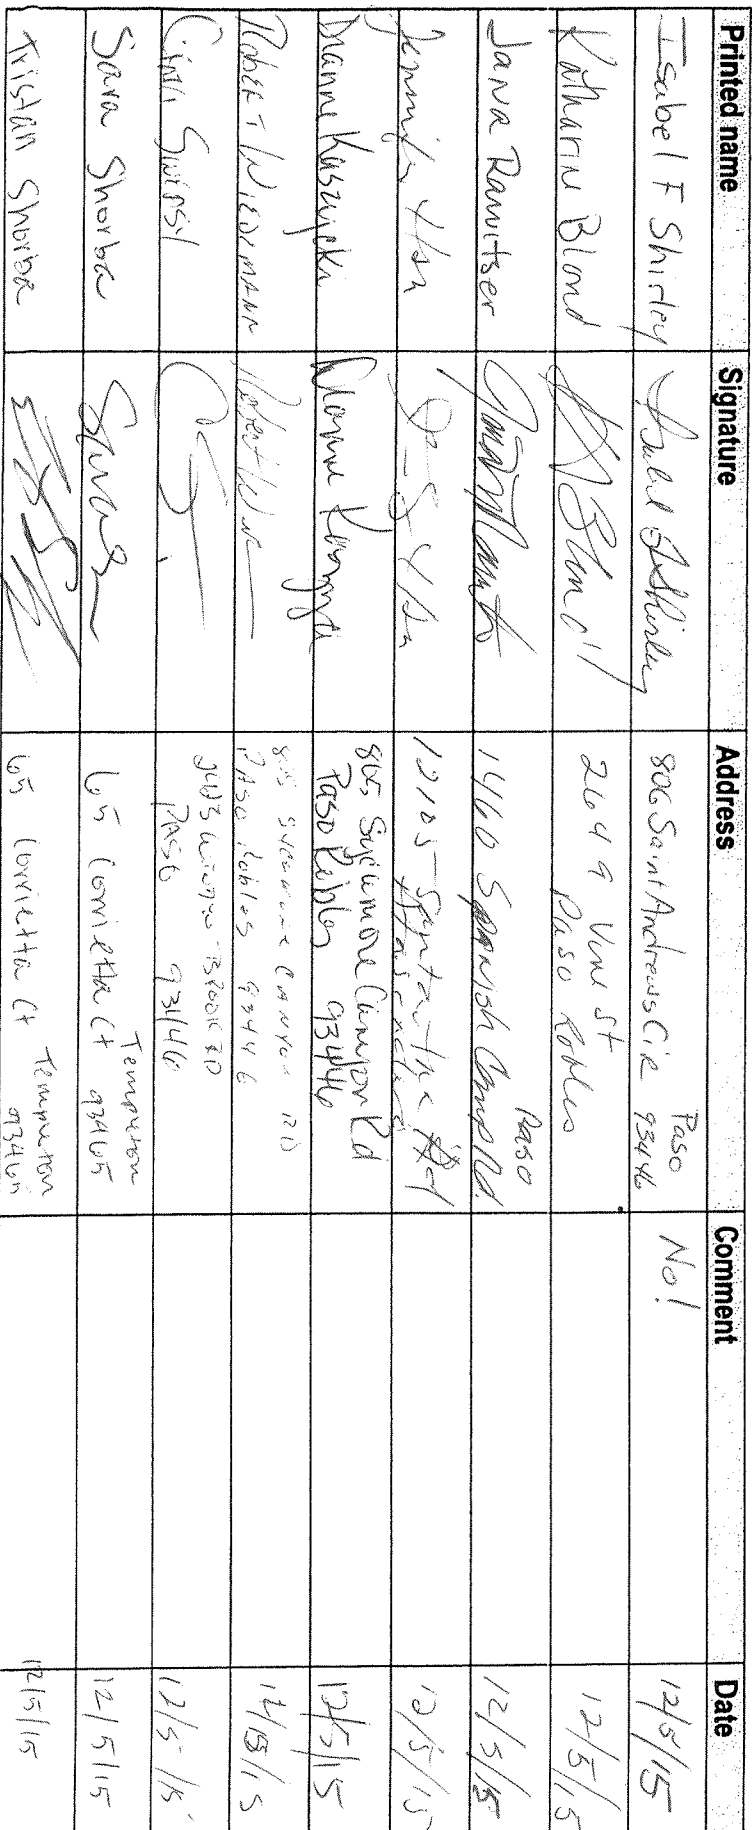 Printed name Signature Address Comment Date
Isabel F Shirley Isabel F Shirley 806 Saint Andrews Cir Paso 93446 No! 12/5/15
Katharine Blond Blond 2649 Vine St Paso Robles 12/5/15
Jana Ramitser 1460 Spanish Camp Rd. Paso 12/5/15
Jennifer 12105 12/5/15
Dianne Kaszycki Dianne Kaszycki 865 Sycamore Canyon Rd Paso Robles 93446 12/5/15
Robert Wiedemann Robert 865 Sycamore Canyon RD Paso Robles 93446 12/5/15
PASO 93446 12/5/15
Sara Shorba Sara 65 Corrietta Ct Templeton 93465 12/5/15
Tristan Shorba 65 Corrietta Ct Templeton 93465 12/5/15